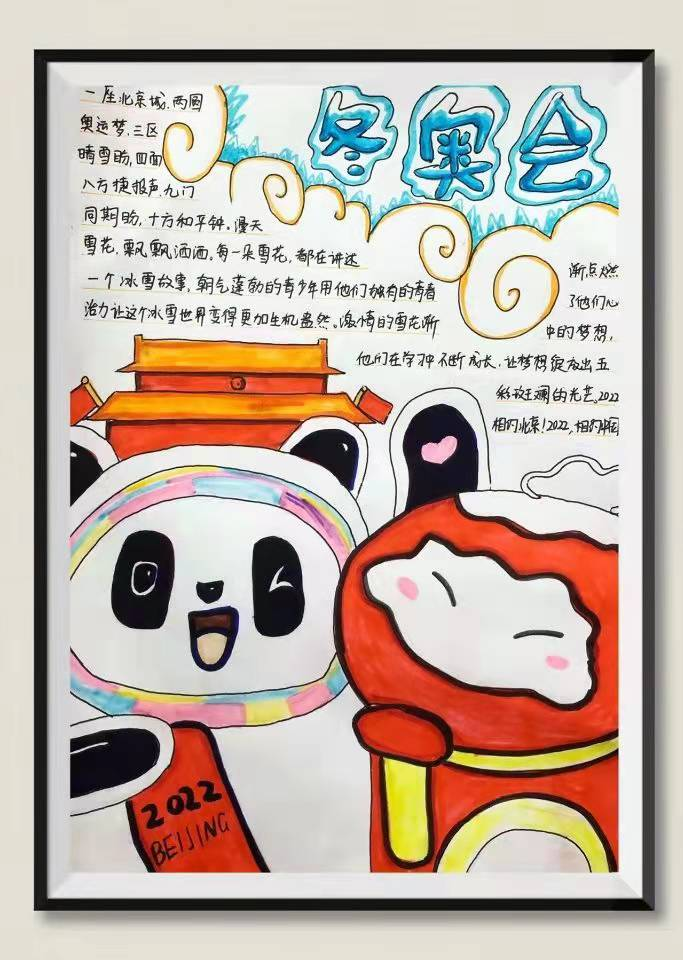 冬奥会
一座北京城,两圆
奥运梦,三区
晴雪盼,四面
八方捷报声,九门
同期盼,十方和平钟。漫天
雪花,飘飘洒洒。每一朵雪花,都在讲述
一个冰雪故事,朝气蓬勃的青少年用他们独有的青春
活力让这个冰雪世界变得更加生机盎然。激情的雪花渐
渐点燃
了他们心
中的梦想,
他们在学习中不断成长,让梦想绽放出五
彩斑斓的光芒。2022
相约北京!2022,相约中国
2022
BEIJING